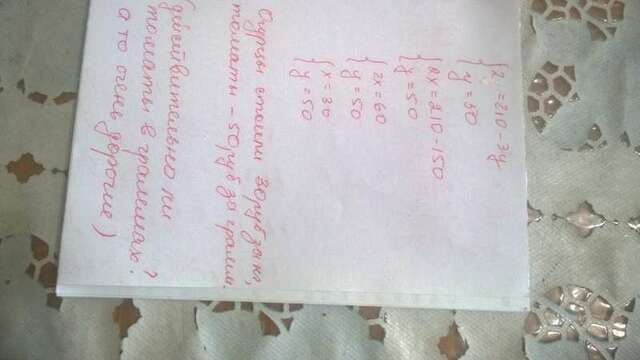 {2x = 210 - 3y
y = 50
{2x = 210 - 150
y = 50
{2x = 60
y = 50
{x = 30
y = 50
Огурцы стоили 30 руб за кг,
томаты - 50 руб за грамм.
(действительно ли
томаты в граммах?
а то очень дорогие)